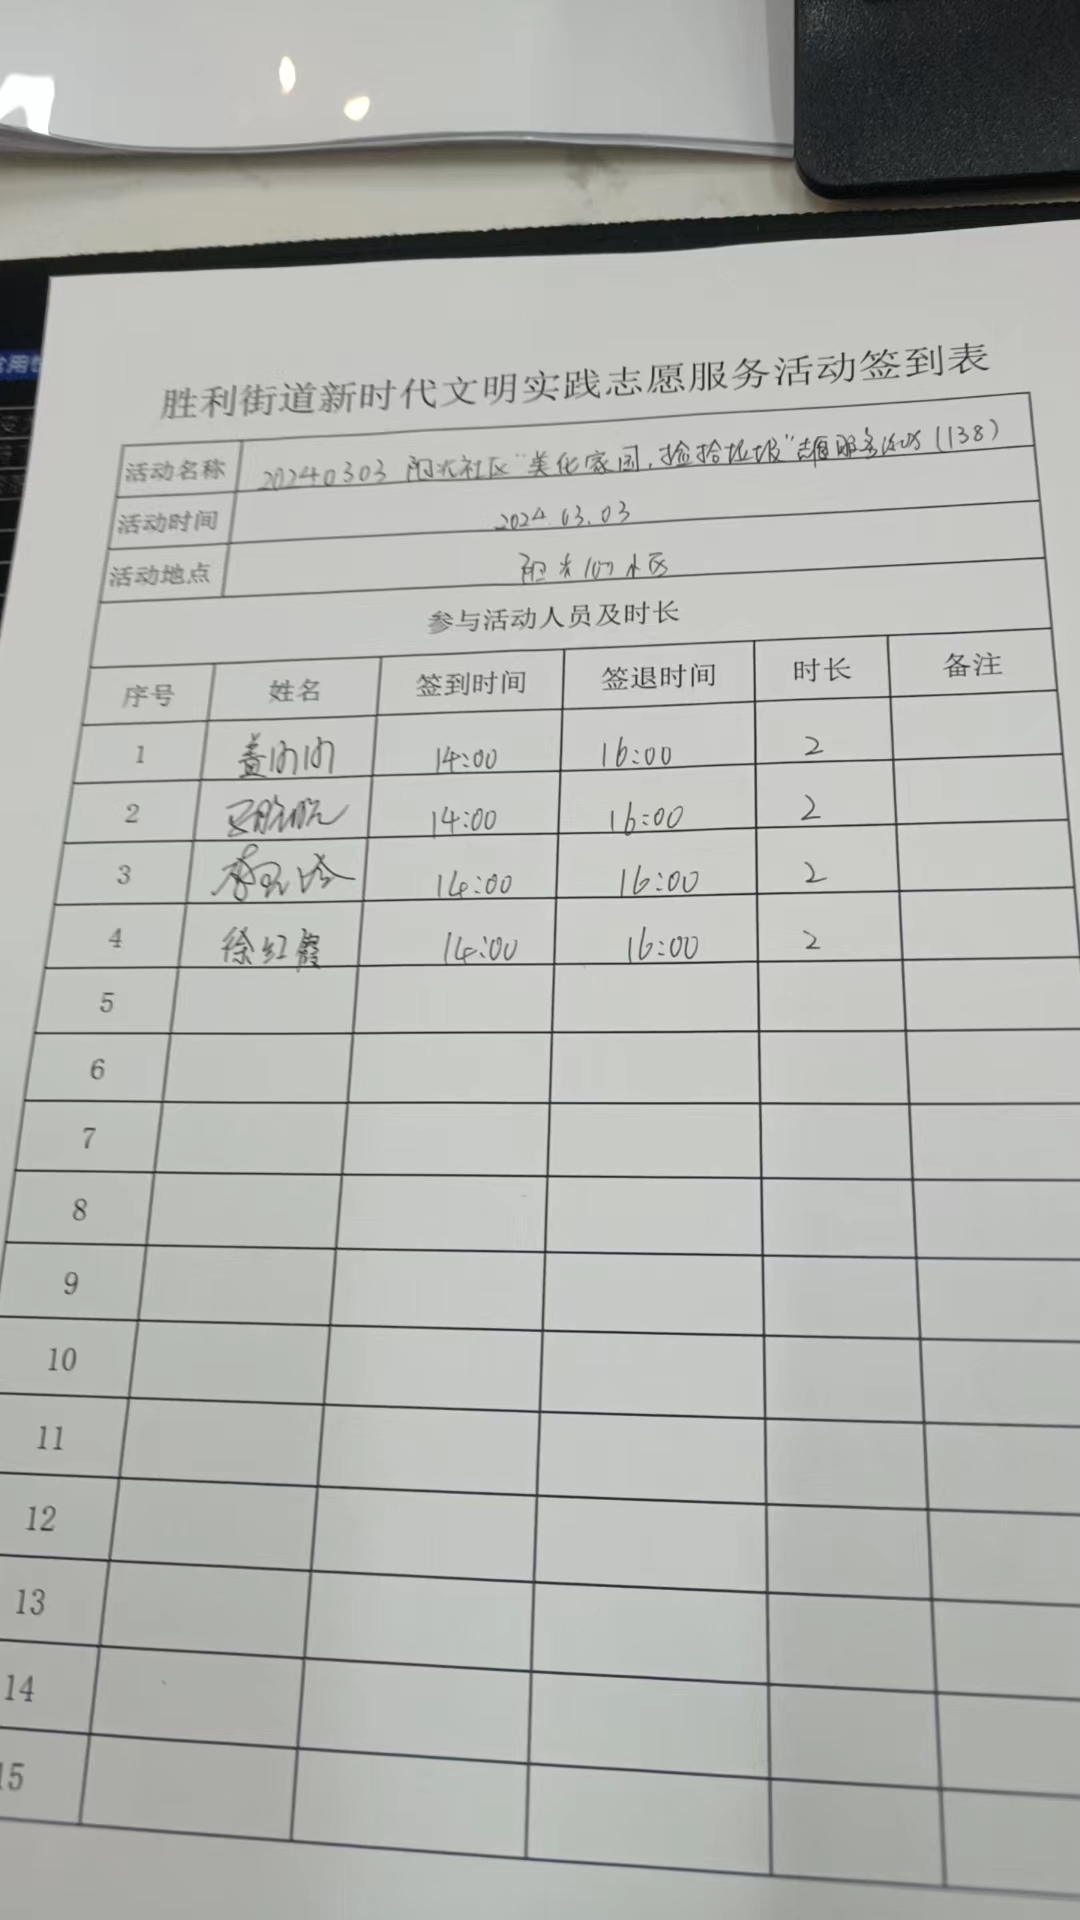 胜利街道新时代文明实践志愿服务活动签到表
活动名称 20240303 阳光社区"美化家园,捡拾垃圾"志愿服务活动(138)
活动时间 2024.03.03
活动地点 阳光100小区
参与活动人员及时长
序号 姓名 签到时间 签退时间 时长 备注
1 盖内内 14:00 16:00 2
2 14:00 16:00 2
3 李 14:00 16:00 2
4 徐红霞 14:00 16:00 2
5
6
7
8
9
10
11
12
13
14
15